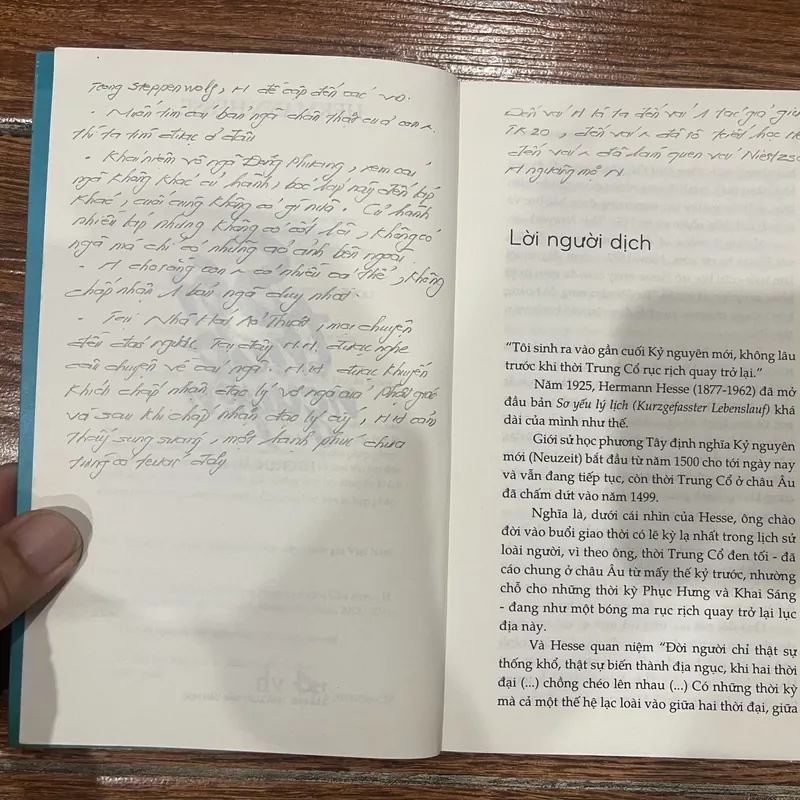 Trong Steppenwolf, H đề cập đến các v/đ.
- Muốn tìm cái bản ngã chân thật của con ʌ.
thì ta tìm được ở đâu
- Khái niệm vô ngã Đông Phương, xem cái
ngã không khác củ hành, bóc lớp này đến lớp
khác, cuối cùng không có gì nữa. Củ hành
nhiều lớp nhưng không có cốt lõi, không có
ngã mà chỉ có những ảo ảnh bên ngoài.
- H cho rằng con ʌ có nhiều cá thể, không
chấp nhận 1 bản ngã duy nhất.
- Tại Nhà Hát Ảo Thuật, mọi chuyện
đều đảo ngược. Tại đây H.H. được nghe
câu chuyện về cái ngã. H.H được khuyến
khích chấp nhận đạo lý vô ngã của Phật giáo
và sau khi chấp nhận đạo lý ấy, H.H cảm
thấy sung sướng, một hạnh phúc chưa
từng có trước đây
Đến với H là ta đến với 1 tác giả
TK 20, đến với ʌ đã rõ triết học
đến với ʌ đã làm quen với
H ngưỡng mộ N.
Lời người dịch
"Tôi sinh ra vào gần cuối Kỷ nguyên mới, không lâu
trước khi thời Trung Cổ rục rịch quay trở lại."
Năm 1925, Hermann Hesse (1877-1962) đã mở
đầu bản Sơ yếu lý lịch (Kurzgefasster Lebenslauf) khá
dài của mình như thế.
Giới sử học phương Tây định nghĩa Kỷ nguyên
mới (Neuzeit) bắt đầu từ năm 1500 cho tới ngày nay
và vẫn đang tiếp tục, còn thời Trung Cổ ở châu Âu
đã chấm dứt vào năm 1499.
Nghĩa là, dưới cái nhìn của Hesse, ông chào
đời vào buổi giao thời có lẽ kỳ lạ nhất trong lịch sử
loài người, vì theo ông, thời Trung Cổ đen tối - đã
cáo chung ở châu Âu từ mấy thế kỷ trước, nhường
chỗ cho những thời kỳ Phục Hưng và Khai Sáng
- đang như một bóng ma rục rịch quay trở lại lục
địa này.
Và Hesse quan niệm "Đời người chỉ thật sự
thống khổ, thật sự biến thành địa ngục, khi hai thời
đại (...) chồng chéo lên nhau (...) Có những thời kỳ
mà cả một thế hệ lạc loài vào giữa hai thời đại, giữa